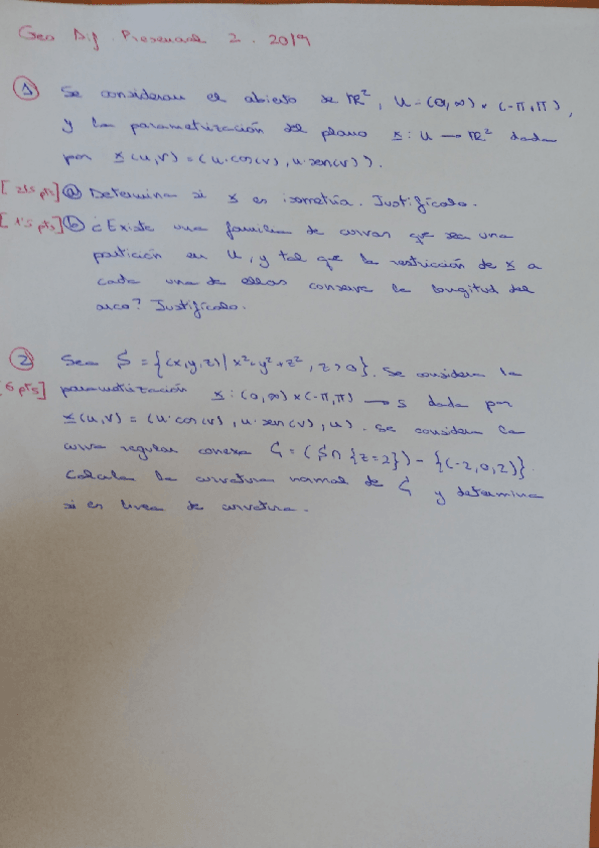 Geo Dif. Presencial 2. 2019
① Se consideran el abierto de ℝ², U = (0, ∞) × (-π, π),
y la parametrización del plano x: U → ℝ² dada
por x(u,v) = (u·cos(v), u·sen(v)).
[2'5 pts] ⓐ Determina si x es isometría. Justifícalo.
[1'5 pts] ⓑ ¿Existe una familia de curvas que sea una
partición en U, y tal que la restricción de x a
cada una de ellas conserve la longitud del
arco? Justifícalo.
② Sea S = {(x,y,z) | x²+y²=z², z>0}. Se considera la
[6 pts] parametrización x: (0, ∞) × (-π, π) → S dada por
x(u,v) = (u·cos(v), u·sen(v), u). Se considera la
curva regular conexa C = (S ∩ {z=2}) - {(-2,0,2)}.
Calcula la curvatura normal de C y determina
si es línea de curvatura.